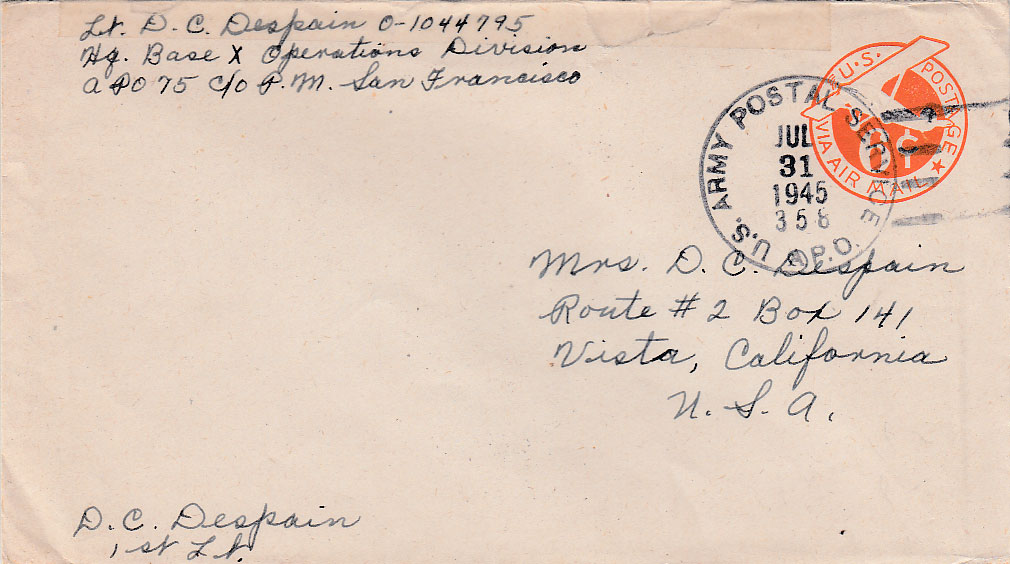 Lt. D. C. Despain O-1044795
Hq. Base X Operations Division
APO 75 C/o P.M. San Francisco
U.S. POSTAGE
VIA AIR MAIL
6 C
U.S. ARMY POSTAL SERVICE
A.P.O.
JUL
31
1945
358
Mrs. D. C. Despain
Route # 2 Box 141
Vista, California
U. S. A.
D. C. Despain
1st Lt.